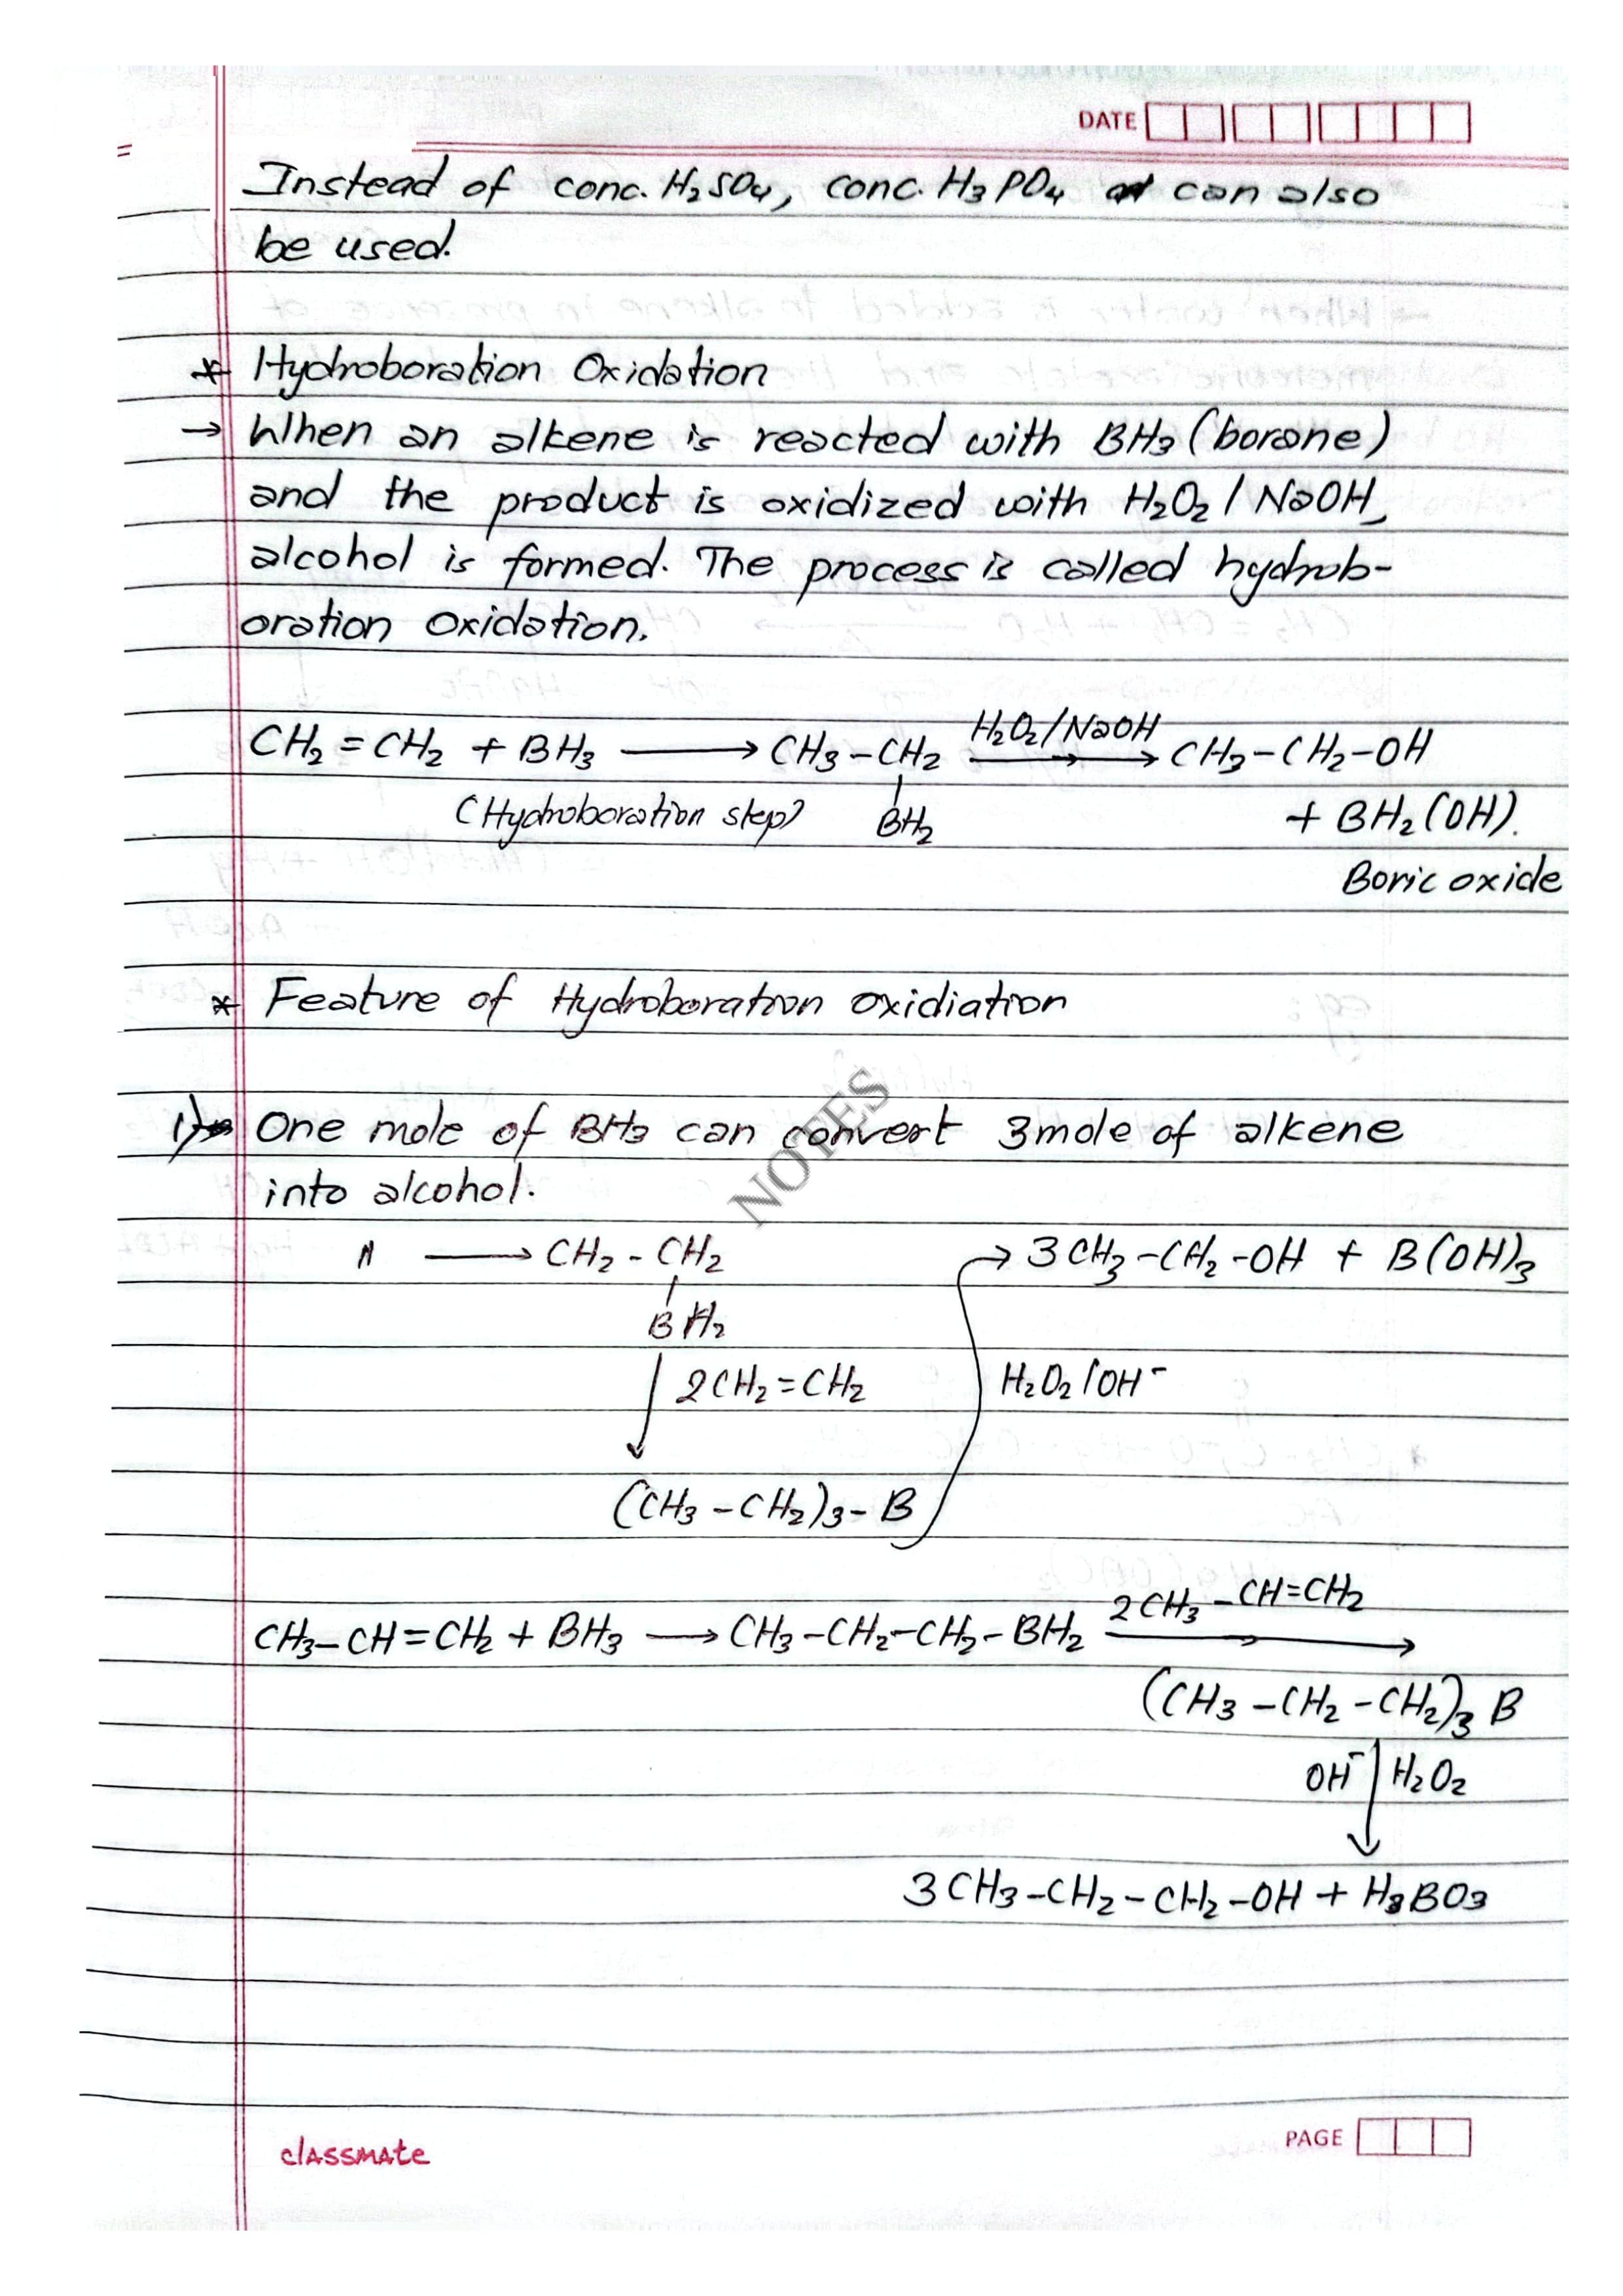 DATE
Instead of conc. H₂SO₄, conc. H₃PO₄ can also
be used.
* Hydroboration Oxidation
→ When an alkene is reacted with BH₃ (borane)
and the product is oxidized with H₂O₂ / NaOH,
alcohol is formed. The process is called hydrob-
oration oxidation.
H₂O₂/NaOH
CH₂ = CH₂ + BH₃ ⟶ CH₃ – CH₂ ⟶ CH₃ – CH₂ – OH
(Hydroboration step) BH₂ + BH₂(OH).
Boric oxide
* Feature of Hydroboration oxidiation
1) One mole of BH₃ can convert 3mole of alkene
into alcohol.
NOTES
" ⟶ CH₂ - CH₂ → 3CH₃ – CH₂ – OH + B(OH)₃
BH₂
2CH₂ = CH₂ H₂O₂ / OH⁻
(CH₃ – CH₂)₃ – B
2CH₃ – CH=CH₂
CH₃ – CH = CH₂ + BH₃ ⟶ CH₃ – CH₂ – CH₂ – BH₂ ⟶
(CH₃ – CH₂ – CH₂)₃ B
OH⁻ ↓ H₂O₂
3CH₃ – CH₂ – CH₂ – OH + H₃BO₃
classmate PAGE